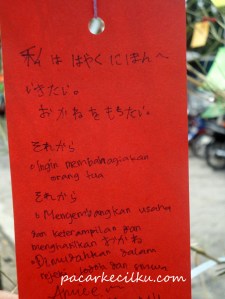 私は はやく にほんへ
いきたい。
おかねをもちたい。
それから
○ Ingin membahagiakan
orang tua
それから
○ Mengembangkan usaha
dan keterampilan dan
menghasilkan おかね
○ Dimudahkan dalam
pacarkecilku.com